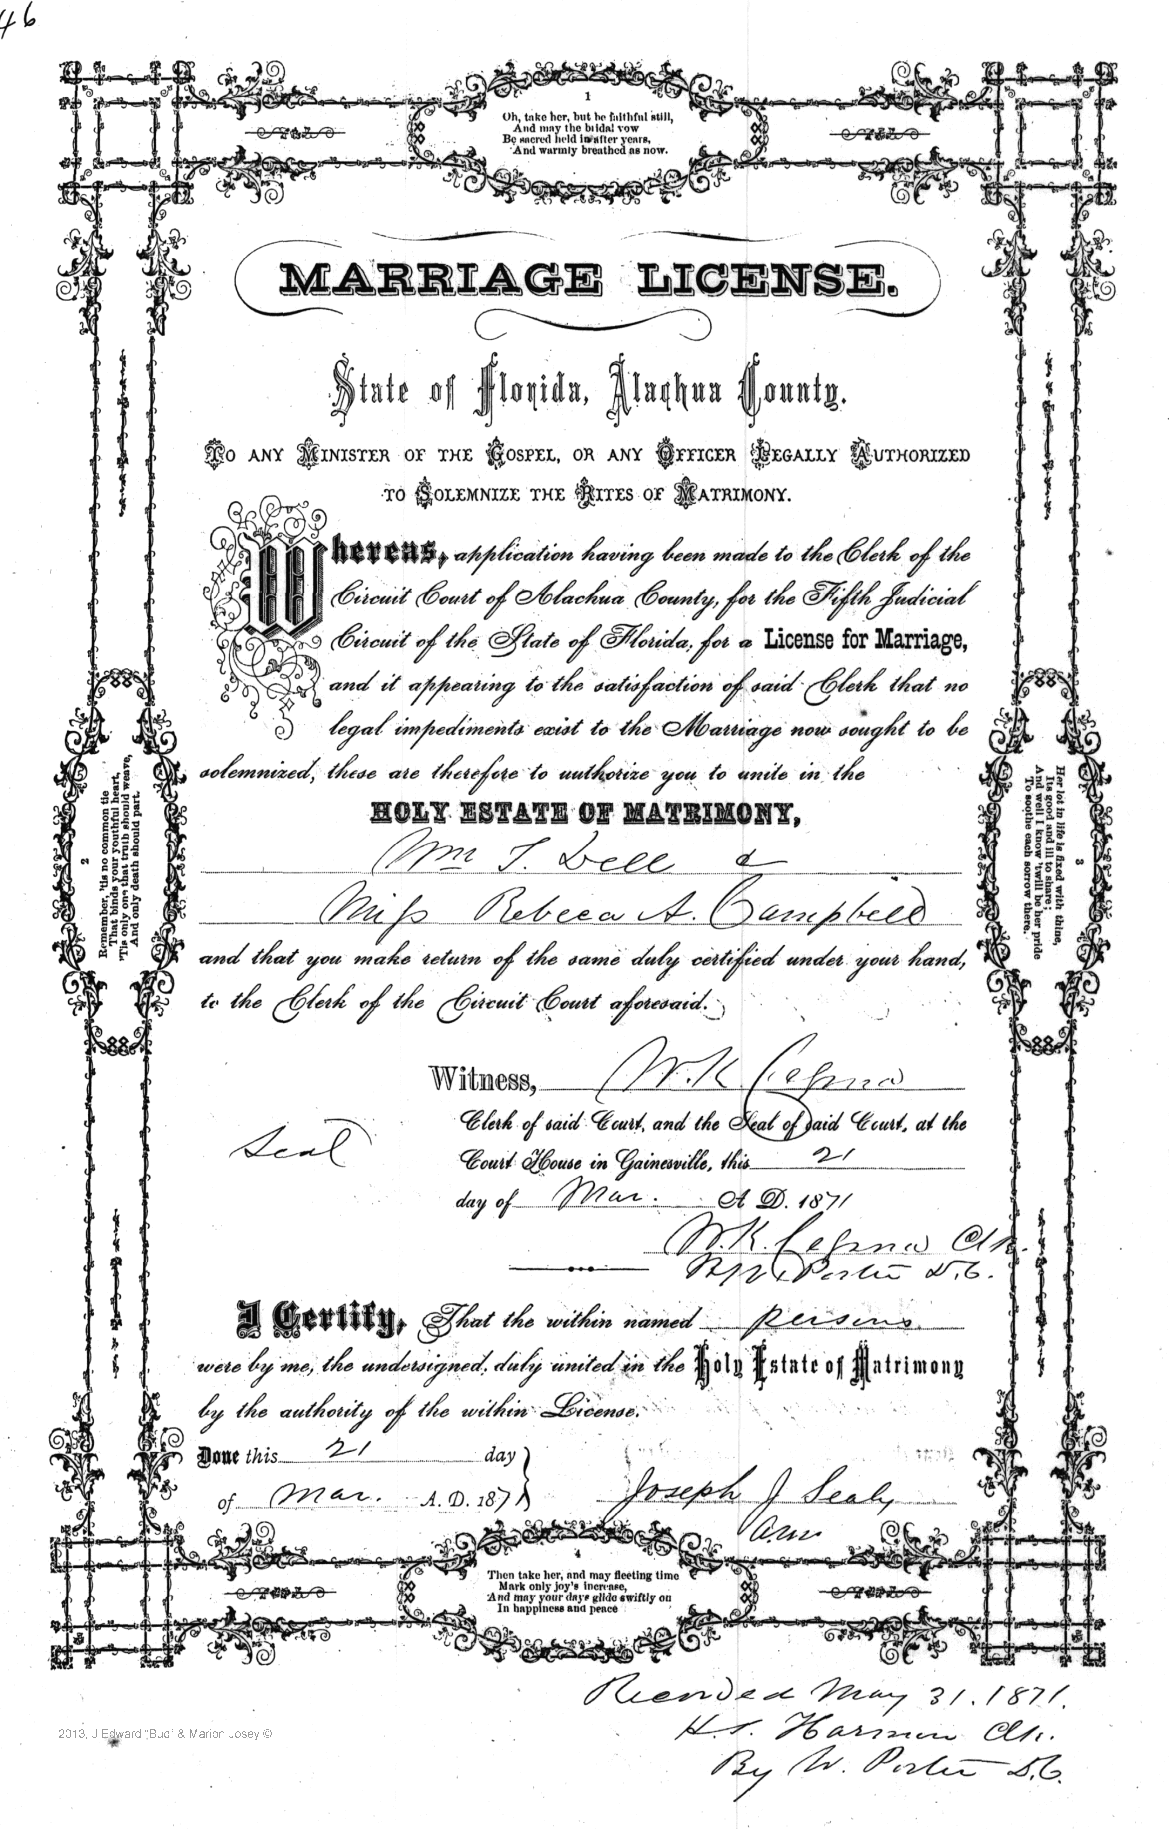 46
1
Oh, take her, but be faithful still,
And may the bridal vow
Be sacred held in after years,
And warmly breathed as now.
MARRIAGE LICENSE.
State of Florida, Alachua County.
TO ANY MINISTER OF THE GOSPEL, OR ANY OFFICER LEGALLY AUTHORIZED
TO SOLEMNIZE THE RITES OF MATRIMONY.
Whereas, application having been made to the Clerk of the
Circuit Court of Alachua County, for the Fifth Judicial
Circuit of the State of Florida, for a License for Marriage,
and it appearing to the satisfaction of said Clerk that no
legal impediments exist to the Marriage now sought to be
solemnized, these are therefore to authorize you to unite in the
HOLY ESTATE OF MATRIMONY,
Wm T. Dell &
Miss Rebeca A. Campbell
and that you make return of the same duly certified under your hand,
to the Clerk of the Circuit Court aforesaid.
2
Remember, 'tis no common tie
That binds your youthful heart,
'Tis only one that truth should weave,
And only death should part.
3
Her lot in life is fixed with thine,
Its good and ill to share;
And well I know 'twill be her pride
To soothe each sorrow there.
Witness, W. K. Cessna
Clerk of said Court, and the Seal of said Court, at the
Seal
Court House in Gainesville, this 21
day of Mar. A D. 1871
W. K. Cessna Clk.
Porter D.C.
I Certify, That the within named persons
were by me, the undersigned, duly united in the Holy Estate of Matrimony
by the authority of the within License.
Done this 21 day
of Mar. A. D. 1871
Joseph J Sealy
Then take her, and may fleeting time
Mark only joy's increase,
And may your days glide swiftly on
In happiness and peace
Recorded May 31. 1871.
H. S. Harmon Clk.
By W. Porter D.C.
2013, J Edward "Bud" & Marion Josey ©